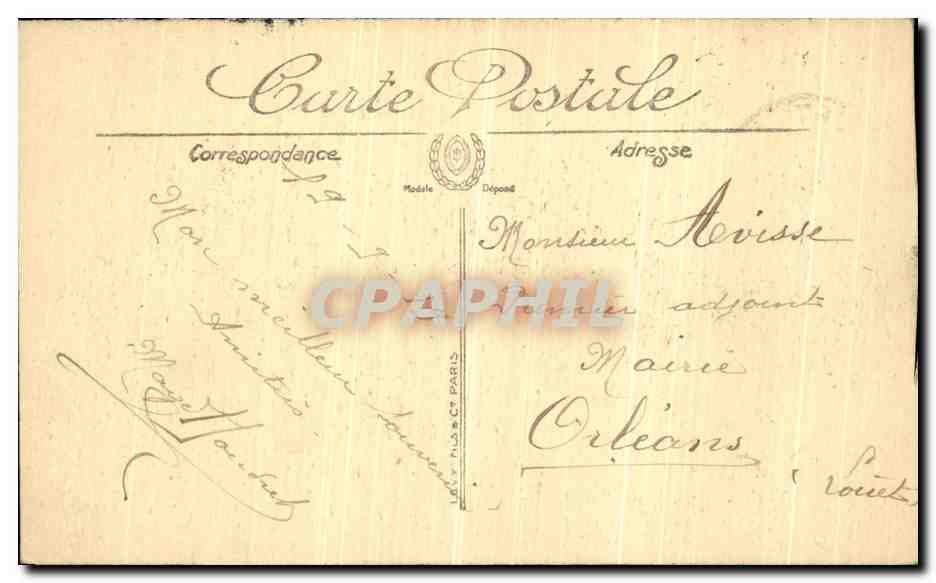 Carte Postale
Correspondance
Adresse
Modèle Déposé
Mon meilleur souvenir
Amitiés
Monsieur Avisse
adjoint
Mairie
Orléans
(Loiret
LEVY FILS & Cie PARIS
CPAPHIL